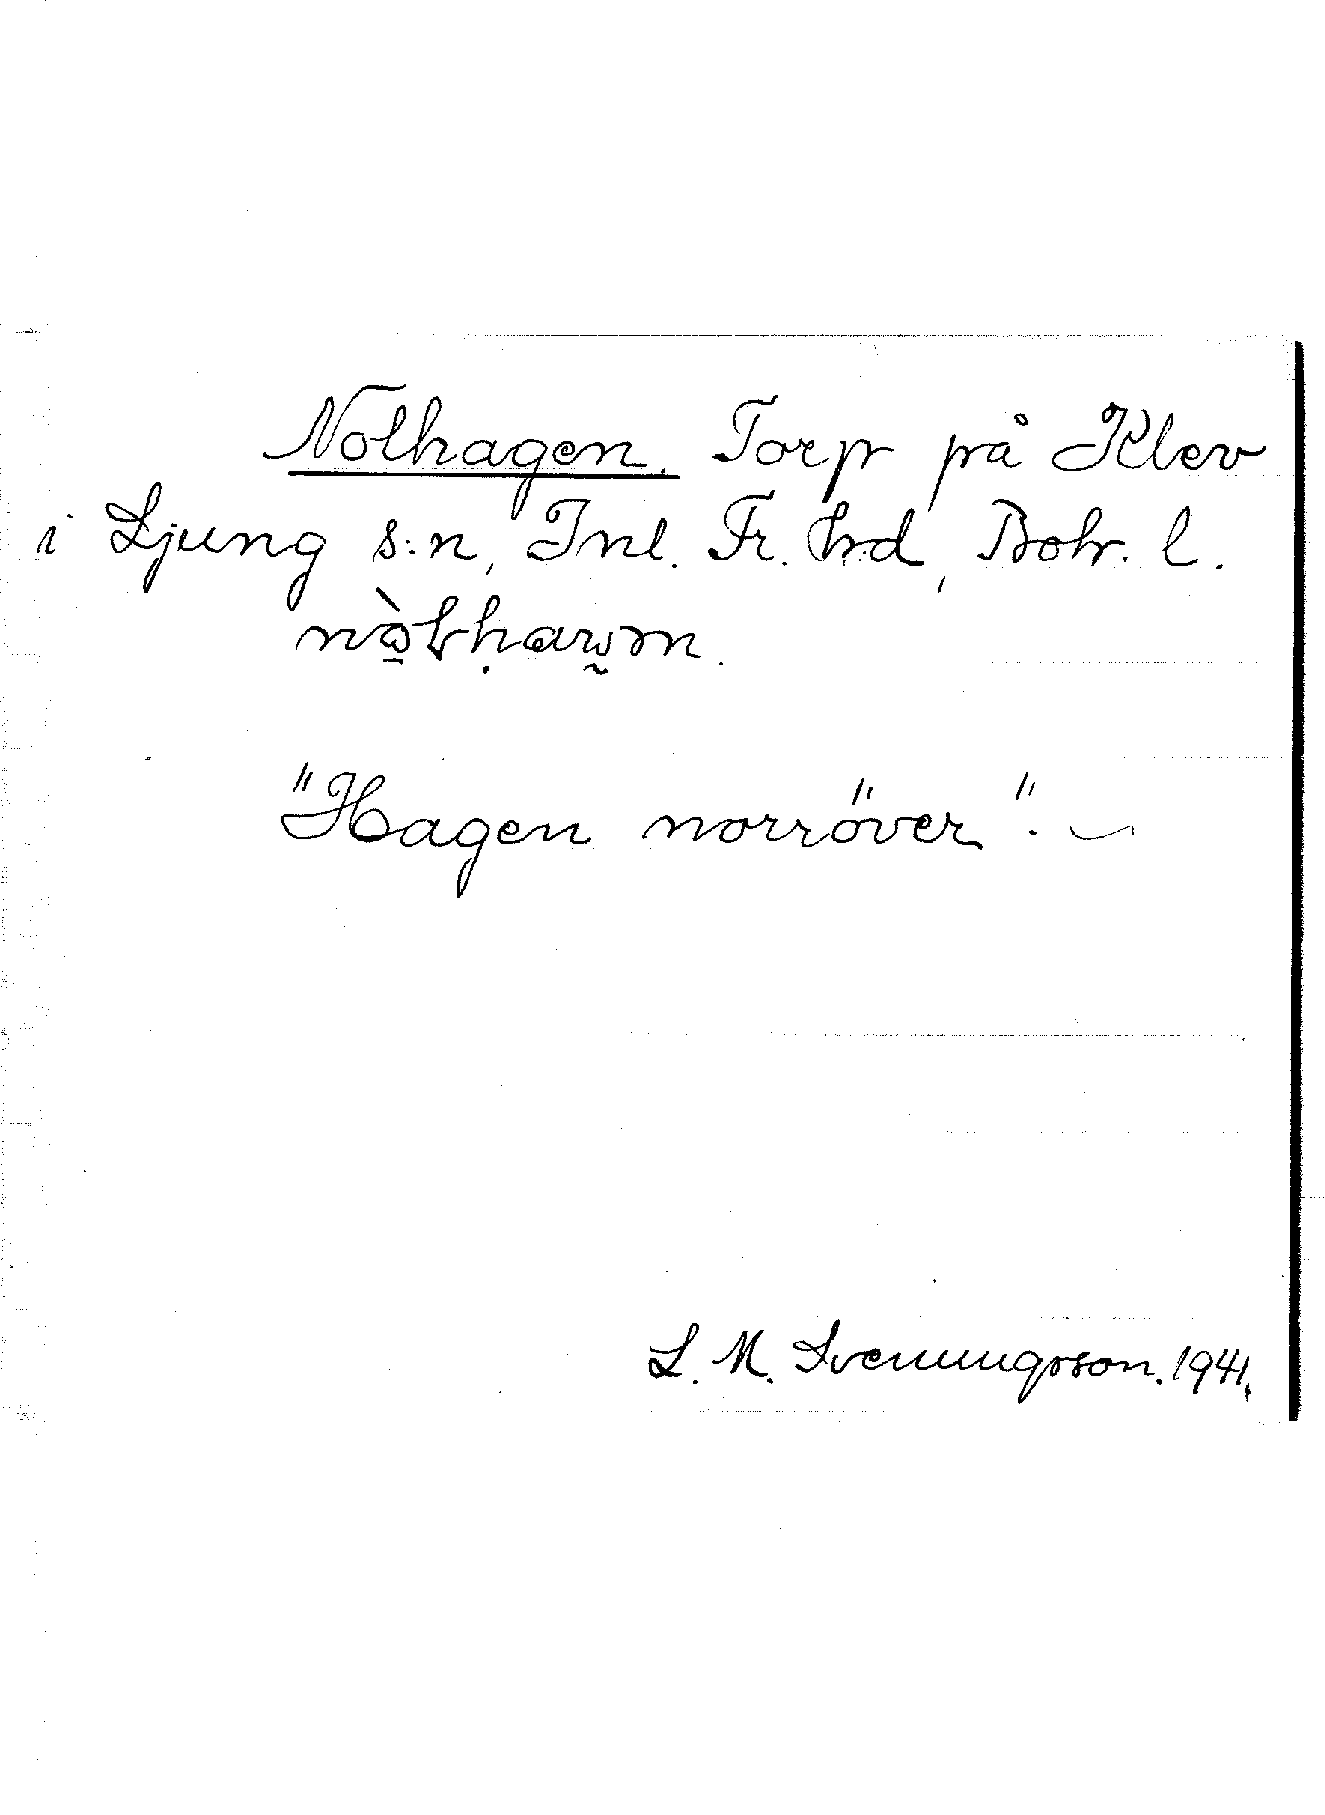 Nolhagen. Torp på Klev
i Ljung s:n, Inl. Fr. hd, Boh. l.
"Hagen norröver".
L. M. Svenungsson. 1941.